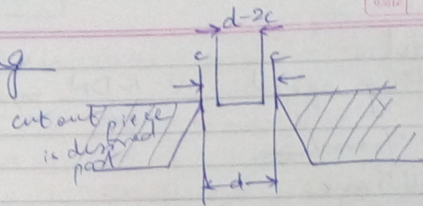 d-2c
g
c c
cut out piece
is desired
part
d